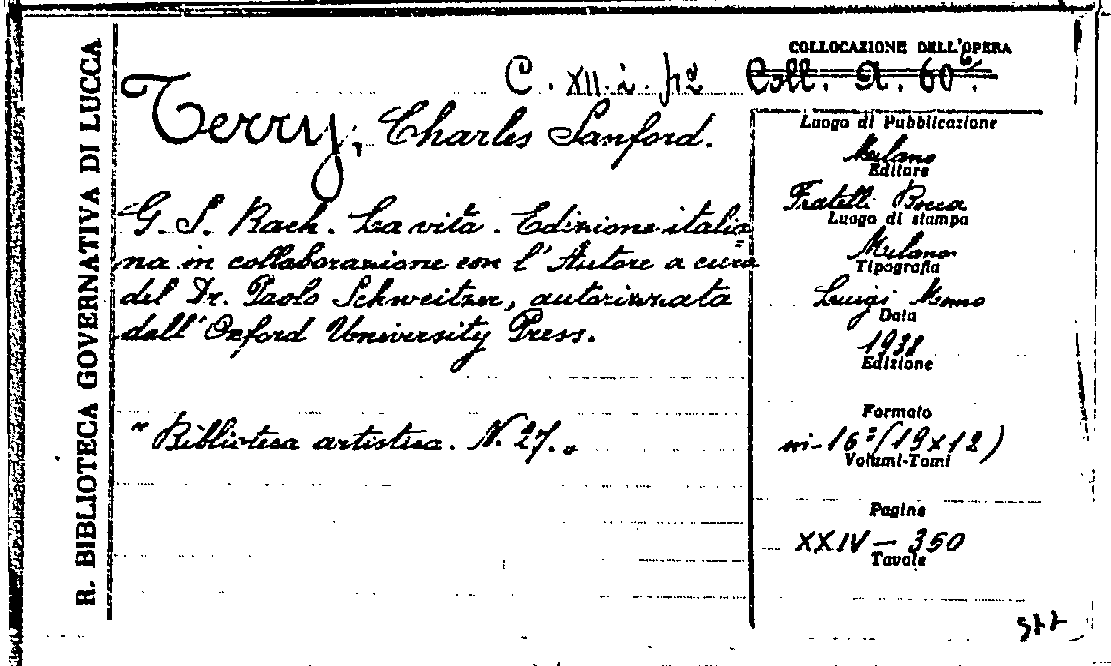 R. BIBLIOTECA GOVERNATIVA DI LUCCA
COLLOCAZIONE DELL'OPERA
C. XII. i. 42 Coll. A. 60⁶.
Terry, Charles Sanford.
G. S. Bach. La vita. Edizione italia=
na in collaborazione con l'Autore a cura
del Dr. Paolo Schweitzer, autorizzata
dall'Oxford University Press.
"Biblioteca artistica. N. 27."
Luogo di Pubblicazione
Milano
Editore
Fratelli Bocca
Luogo di stampa
Milano
Tipografia
Luigi
Data
1931
Edizione
Formato
in-16° (19x12)
Volumi-Tomi
Pagine
XXIV - 350
Tavole